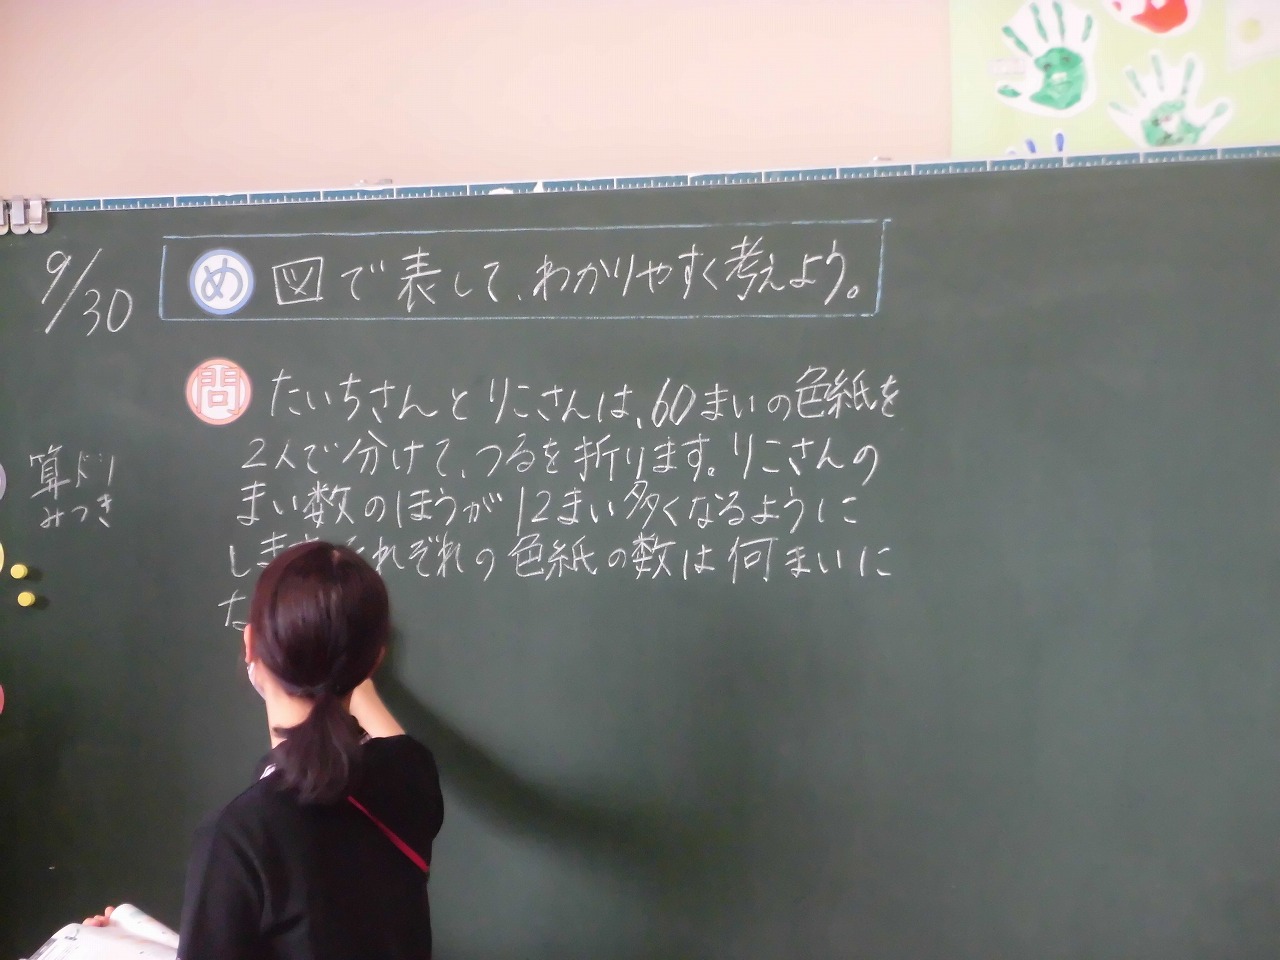 9/30
め 図で表して、わかりやすく考えよう。
問 たいちさんとりこさんは、60まいの色紙を
2人で分けて、つるを折ります。りこさんの
まい数のほうが12まい多くなるように
しま それぞれの色紙の数は何まいに
な
算ドリ
みつき